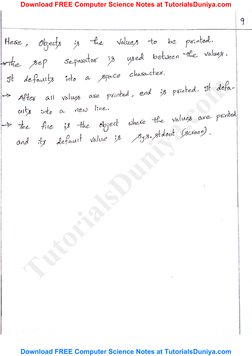 Download FREE Computer Science Notes at TutorialsDuniya.com
9
Here, objects is the values to be printed.
→ The sep separator is used between the values.
It defaults into a space character.
→ After all values are printed, end is printed. It defa-
ults into a new line.
→ The file is the object where the values are printed
and its default value is sys.stdout (screen).
TutorialsDuniya.com
Download FREE Computer Science Notes at TutorialsDuniya.com